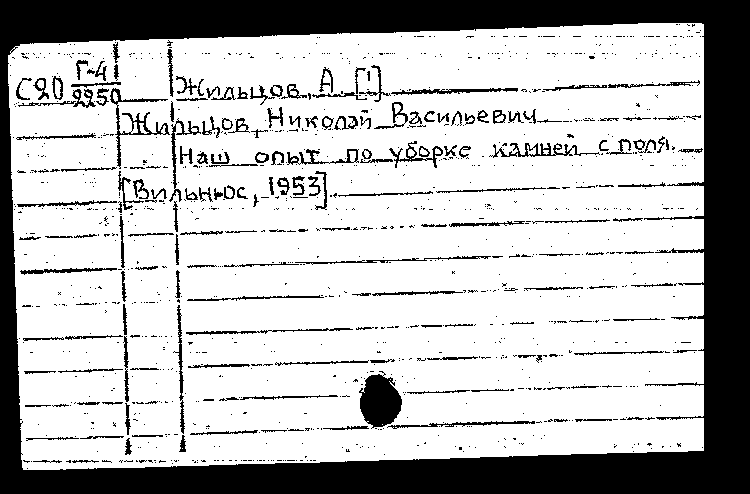 С20 Г-4/2250 Жильцов, А [1]
Жильцов, Николай Васильевич
Наш опыт по уборке камней с поля.
[Вильнюс, 1953].